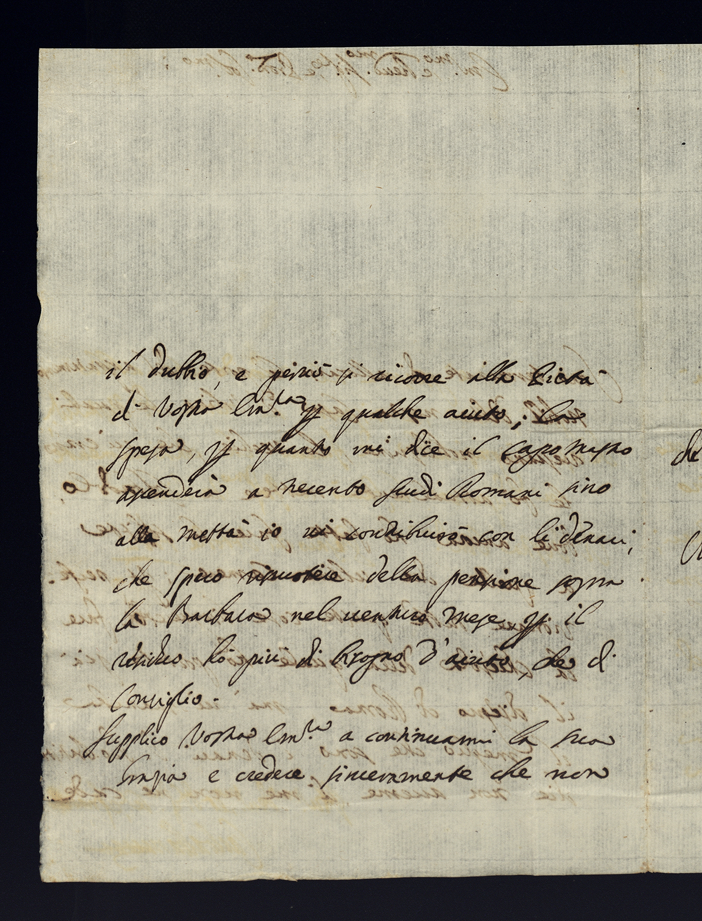 il dubbio, e perciò si ricorre alla Pietà
di Vostra Em.za p qualche aiuto; La
spesa, p quanto mi dice il capo mastro
ascenderà a trecento scudi Romani sino
alla mettà io vi contribuirò con li denari,
che spero riscuotere della pensione sopra
la Barbara nel venturo Mese, p il
residuo hò più di bisogno d'aiuto, che di
Consiglio.
Supplico Vostra Em.za a continuarmi la sua
Grazia e credere sinceramente che non